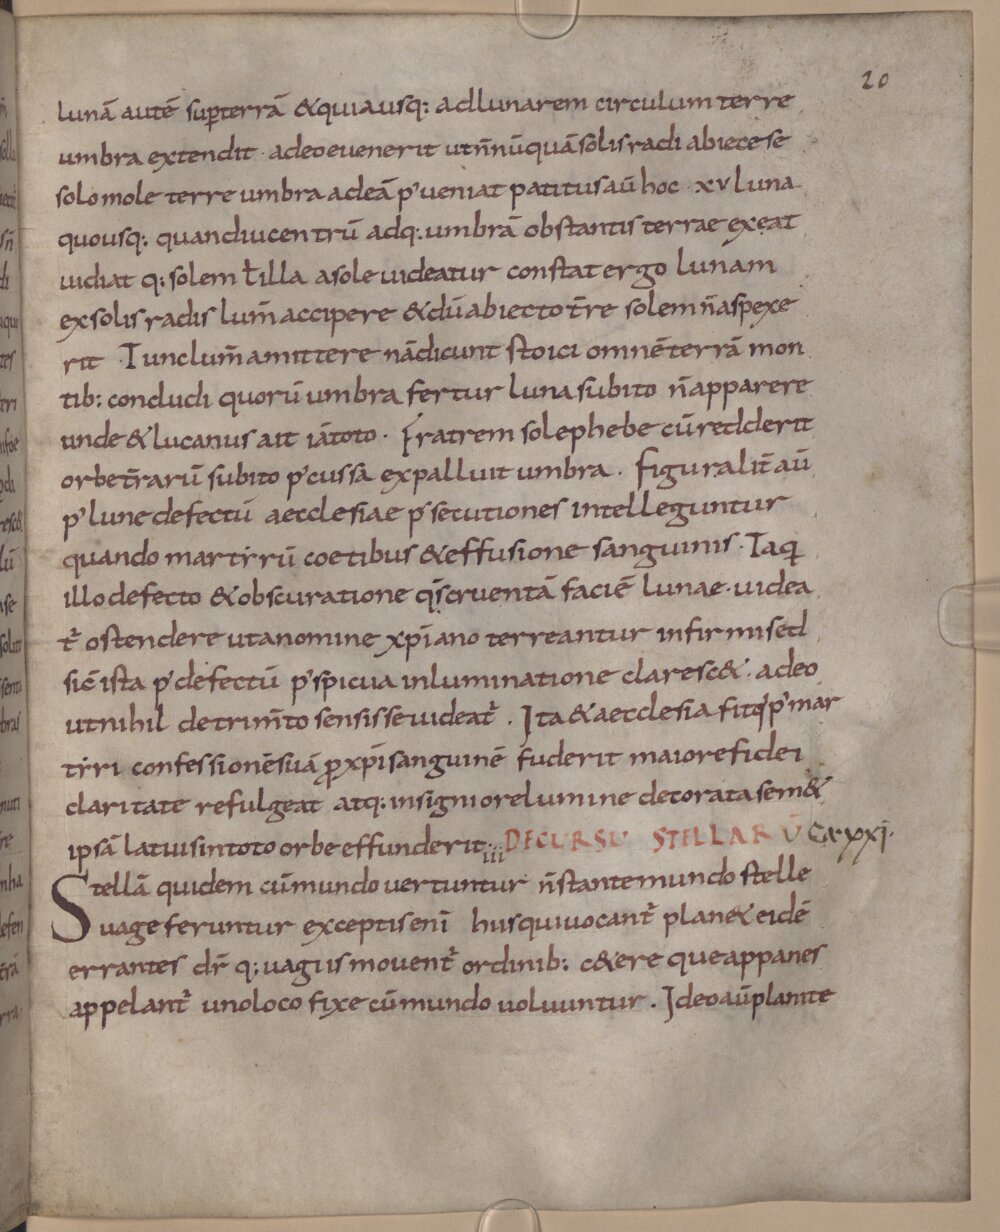 20
lunā autē suꝑ terrā & quia usq: ad lunarem circulum terre
umbra extendit · adeo evenerit ut nñ nūquā solis radi abiecte se
solo mole terre umbra ad eā p̄veniat patitus aū hoc · xv luna
quousq: quandiu centrū adq: umbrā obstantis terrae exeat
vidiat q: solem ł illa a sole videatur constat ergo lunam
ex solis radis lum̄ accipere & dū abiecto t̄re solem n̄ aspexe
rit · Tunc lum̄ amittere nā dicunt stoici omnē terrā mon
tib: concludi quorū umbra fertur luna subito n̄ apparere
unde & lucanus ait iā toto · Fratrem sole phebe cū redderit
orbe t̄rarū subito p̄cussa expalluit umbra · figuralit̄ aū
p̄ lune defectū aecclesiae p̄secutiones intelleguntur
quando martirū coetibus & effusione sanguinis · Taq
illo defecto & obscuratione q̄si cruentā faciē lunae · videa
t̄ ostendere ut a nomine xp̄iano terreantur infirmi sed
sic̄ ista p̄ defectū p̄spicua inluminatione claresc& · adeo
ut nihil detrim̄to sensisse videat̄ · Ita & aecclesia fit q̄ p̄ mar
tiri confessionē suā ꝓ xp̄i sanguinē fuderit maiore fidei
claritate refulgeat atq: insigniore lumine decorata sem&
ipsā latius in toto orbe effunderit · iii DE CURSU STELLARŪ Cꝛ xxi ·
Stellā quidem cū mundo vertuntur n̄ stante mundo stelle
vage feruntur exceptis enī husqui vocant̄ plan& eidē
errantes dr̄ q: vagiis movent̄ ordinib: c&ere que appanes
appelant̄ uno loco fixe cū mundo volvuntur · Ideo aū planite